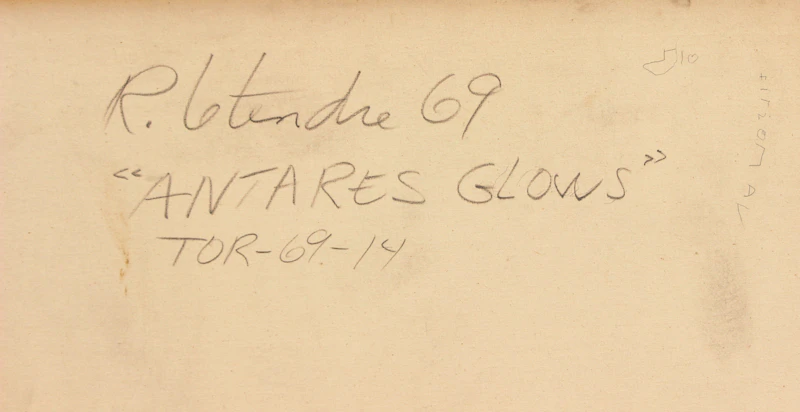 R. Letendre 69
“ANTARES GLOWS”
TOR-69-14